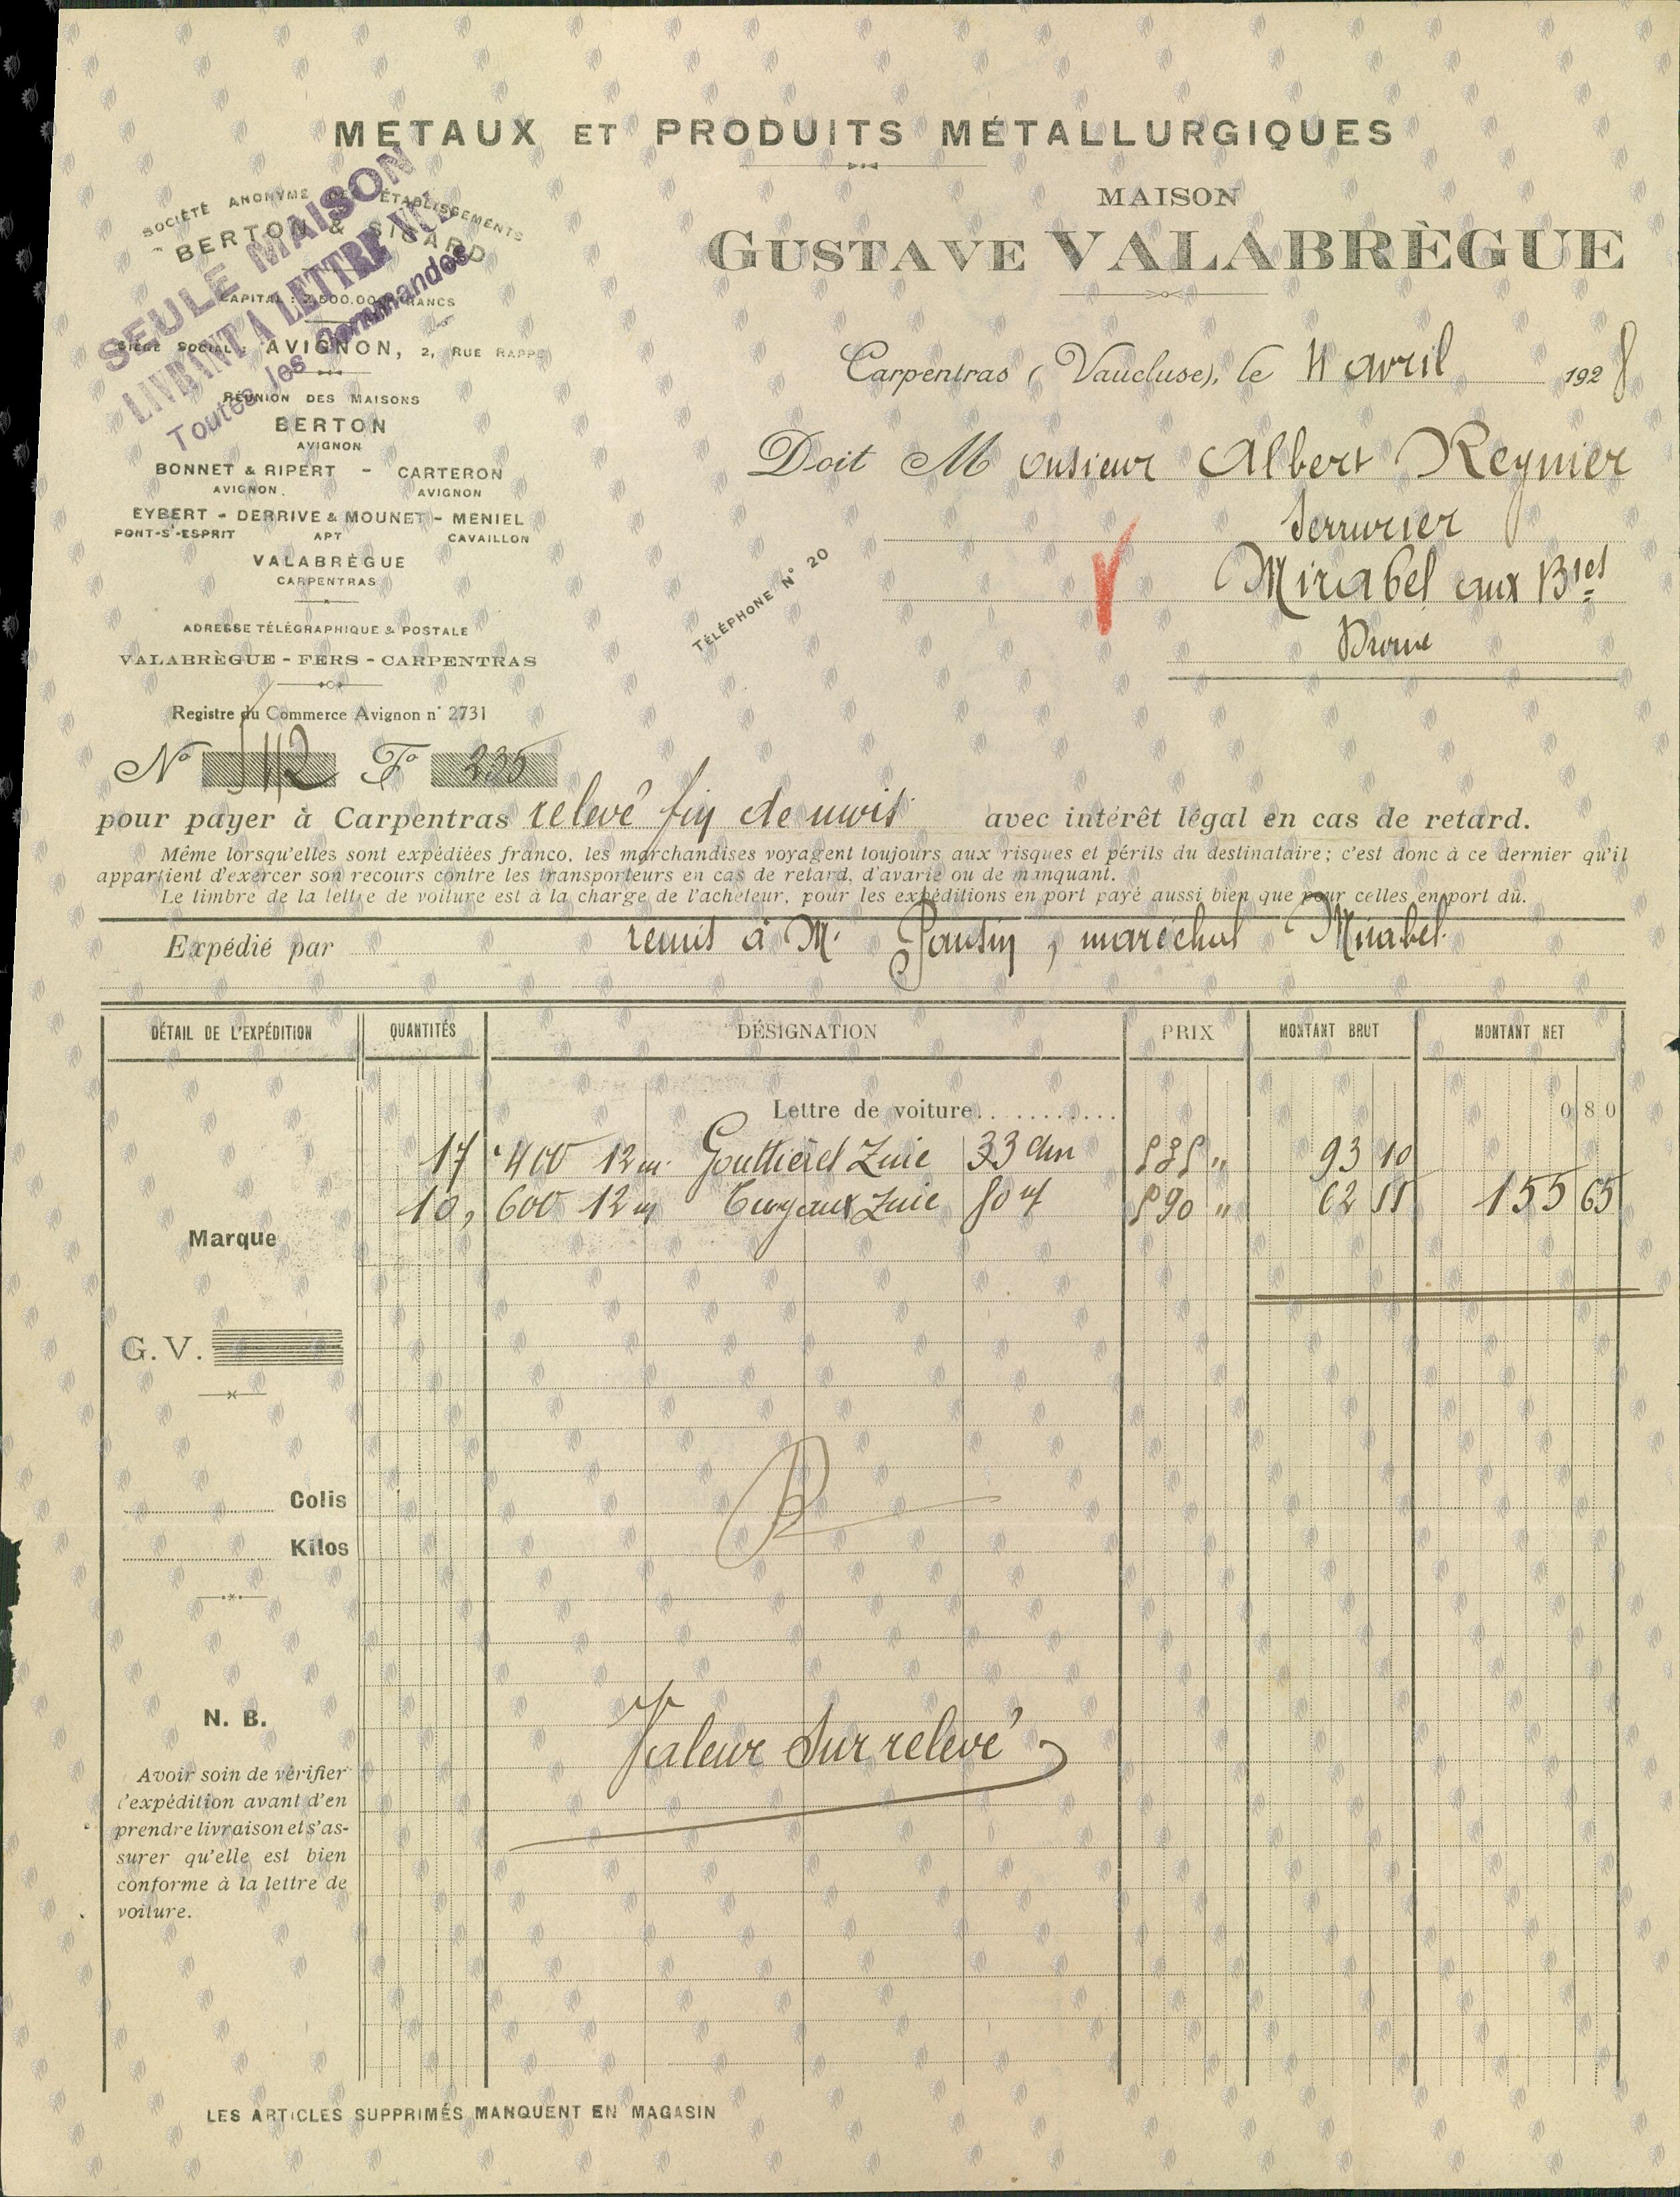 METAUX ET PRODUITS MÉTALLURGIQUES
SOCIÉTÉ ANONYME DES ÉTABLISSEMENTS
BERTON & SICARD
CAPITAL : 2.500.000 FRANCS
SIÈGE SOCIAL : AVIGNON, 2, RUE RAPPE
SEULE MAISON
LIVRANT A LETTRE VUE
Toutes les Commandes
RÉUNION DES MAISONS
BERTON
AVIGNON
BONNET & RIPERT - CARTERON
AVIGNON. AVIGNON
EYBERT - DERRIVE & MOUNET - MENIEL
PONT-St-ESPRIT APT CAVAILLON
VALABRÈGUE
CARPENTRAS
ADRESSE TÉLÉGRAPHIQUE & POSTALE
VALABRÈGUE - FERS - CARPENTRAS
Registre du Commerce Avignon n° 2731
MAISON
GUSTAVE VALABRÈGUE
Carpentras (Vaucluse), le 11 avril 1928
Doit Monsieur Albert Reynier
Serrurier
Mirabel aux Bies
Drome
TÉLÉPHONE N° 20
No 5112 Fo 235
pour payer à Carpentras relevé fin de mois avec intérêt légal en cas de retard.
Même lorsqu'elles sont expédiées franco, les marchandises voyagent toujours aux risques et périls du destinataire ; c'est donc à ce dernier qu'il
appartient d'exercer son recours contre les transporteurs en cas de retard, d'avarie ou de manquant.
Le timbre de la lettre de voiture est à la charge de l'acheteur, pour les expéditions en port payé aussi bien que pour celles en port dû.
Expédié par remis à Mr , maréchal Mirabel
DÉTAIL DE L'EXPÉDITION QUANTITÉS DÉSIGNATION PRIX MONTANT BRUT MONTANT NET
Lettre de voiture........... 0 80
17,400 12 m. Gouttières Zinc 33 c/m 535 " 93 10
10,600 12 m Tuyaux Zinc 80 m/ 590 " 62 55 155 65
Marque
G. V.
Colis
Kilos
N. B.
Avoir soin de vérifier
l'expédition avant d'en
prendre livraison et s'as-
surer qu'elle est bien
conforme à la lettre de
voiture.
Valeur Sur relevé
LES ARTICLES SUPPRIMÉS MANQUENT EN MAGASIN